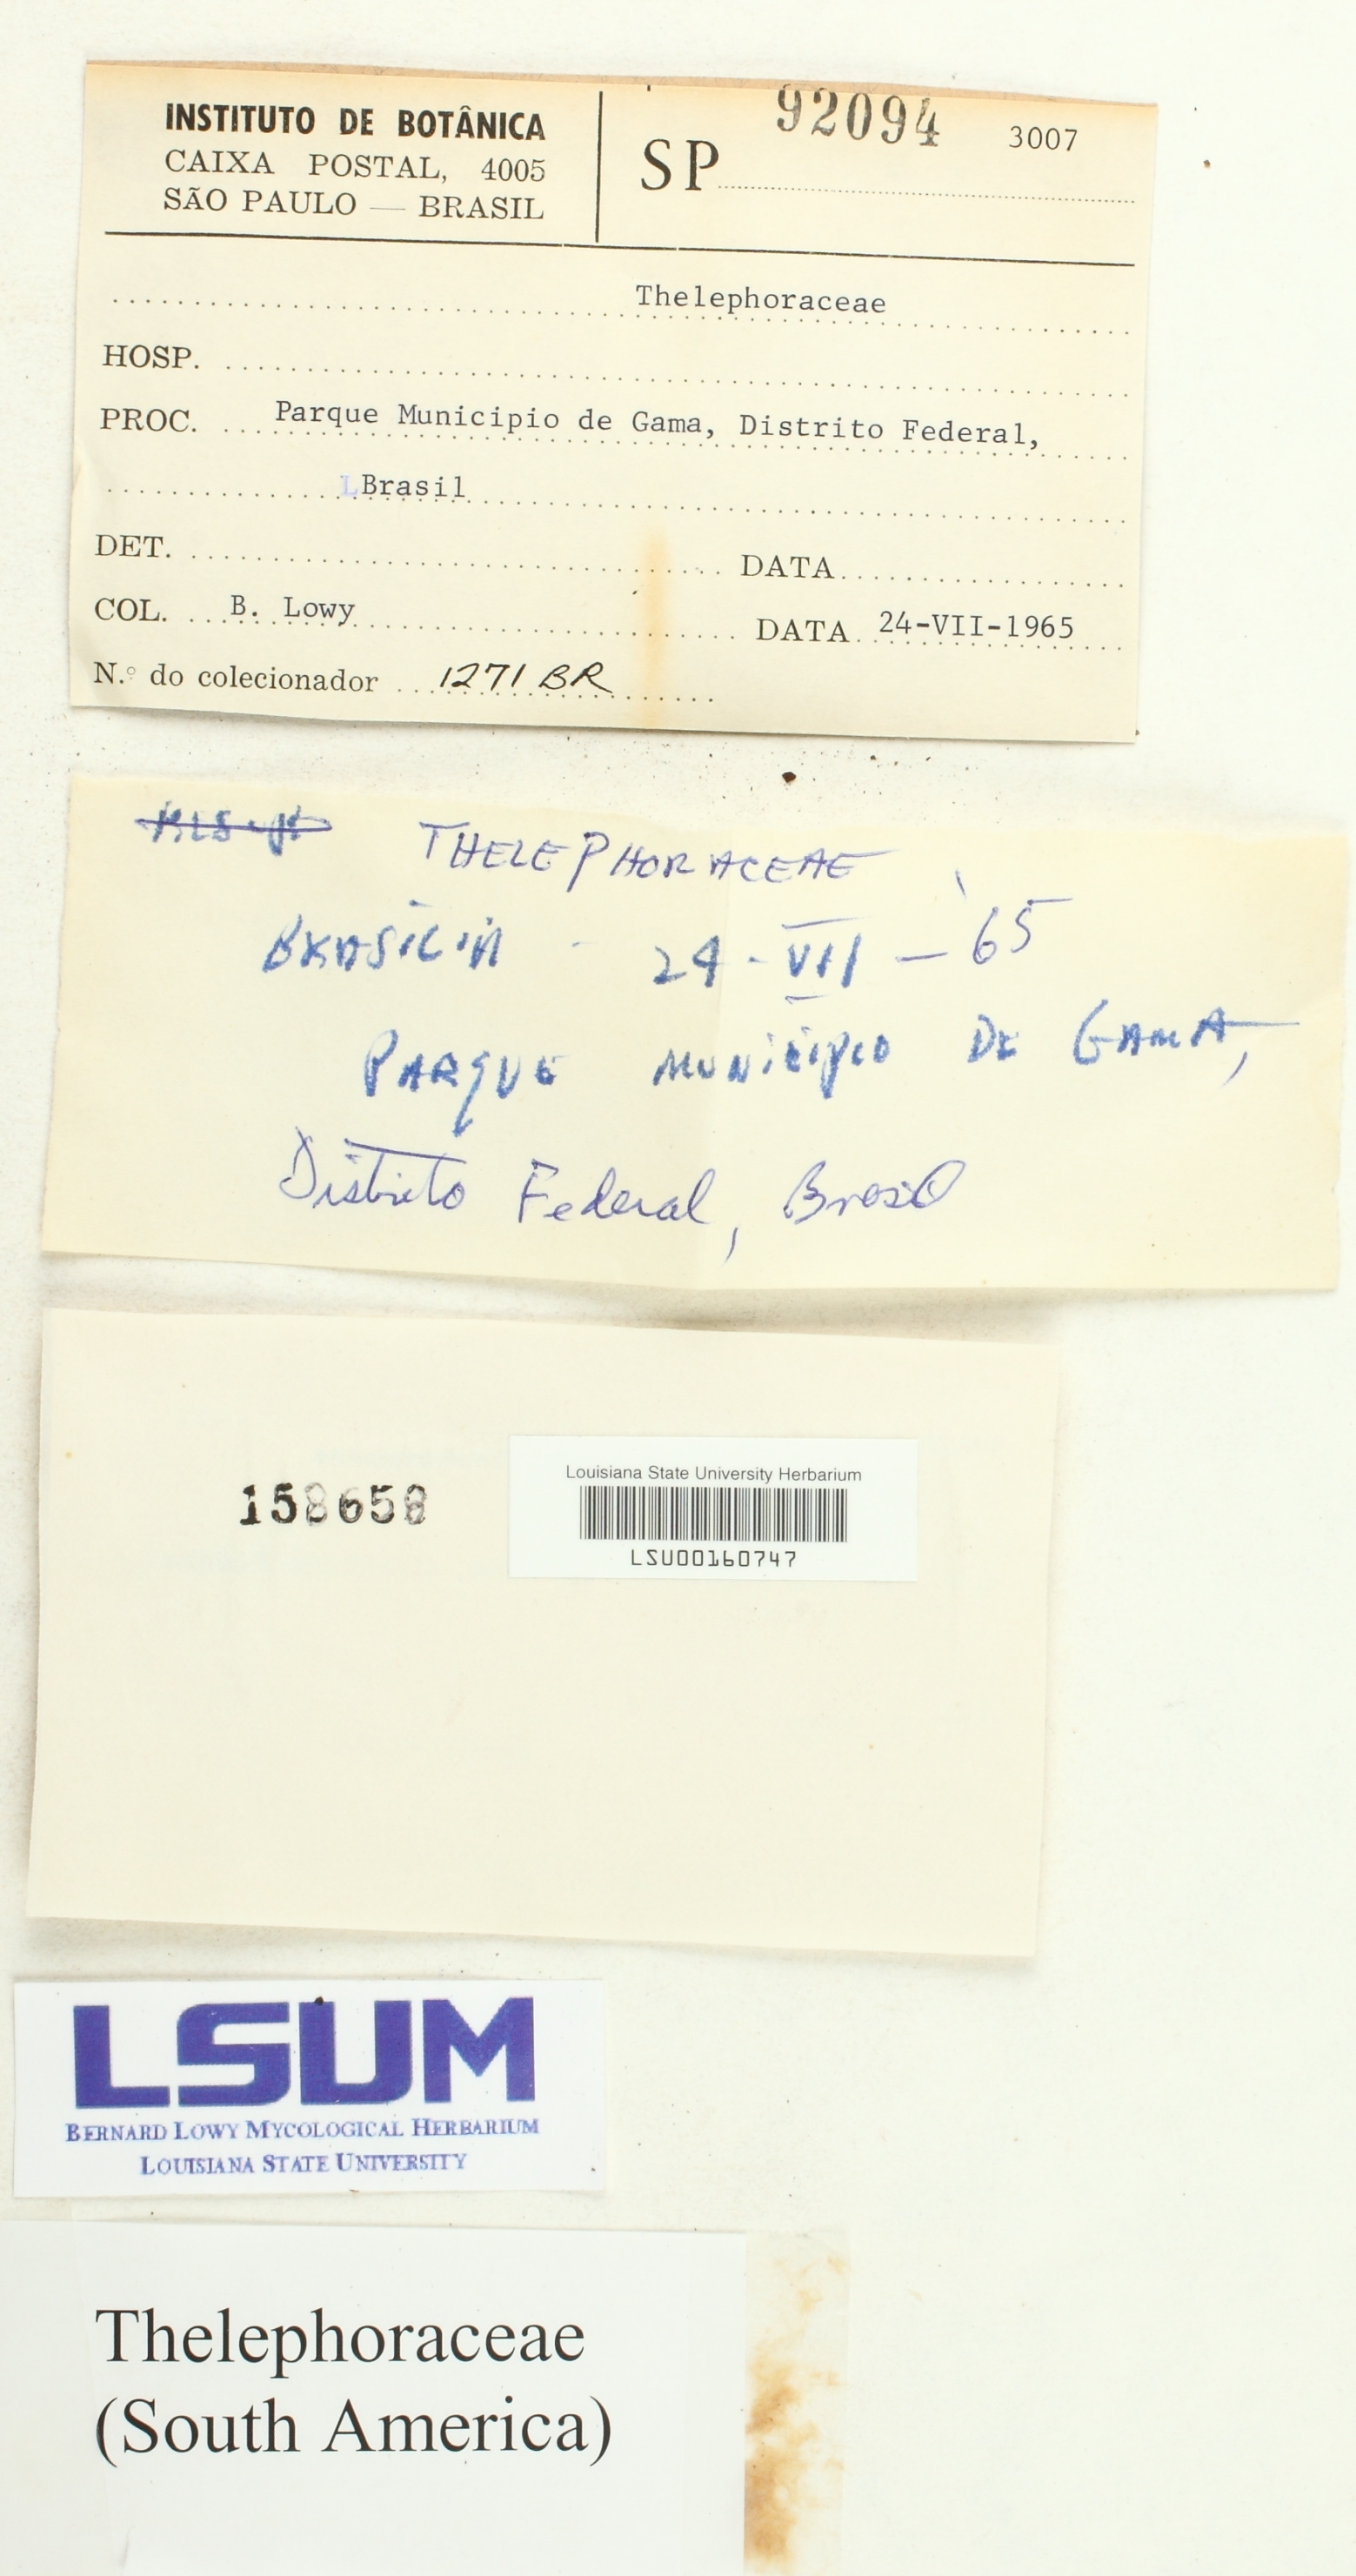 INSTITUTO DE BOTÂNICA
CAIXA POSTAL, 4005
SÃO PAULO — BRASIL
SP 92094 3007
Thelephoraceae
HOSP.
PROC. Parque Municipio de Gama, Distrito Federal,
LBrasil
DET. DATA
COL. B. Lowy DATA 24-VII-1965
N.º do colecionador 1271 BR
THELEPHORACEAE
BRASILIA - 24-VII-65
PARQUE MUNICIPIO DE GAMA,
Distrito Federal, Brasil
158658
Louisiana State University Herbarium
LSU00160747
LSUM
BERNARD LOWY MYCOLOGICAL HERBARIUM
LOUISIANA STATE UNIVERSITY
Thelephoraceae
(South America)